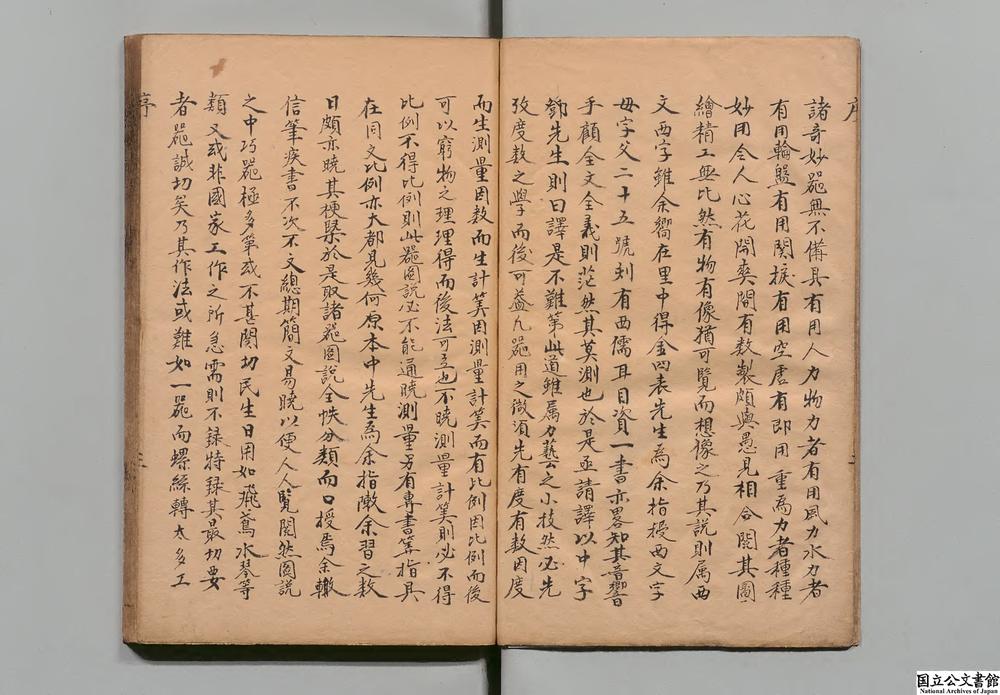 序
諸奇妙器無不備具有用人力物力者有用風力水力者
有用輪盤有用関捩有用空虛有即用重為力者種種
妙用令人心花開爽間有数製頗與愚見相合閱其圖
繪精工無比然有物有像猶可覽而想像之乃其說則属西
文西字雖余嚮在里中得金四表先生為余指授西文字
母字父二十五號刻有西儒耳目資一書亦畧知其音響
乎顧全文全義則茫然其莫測也於是亟請譯以中字
鄧先生則曰譯是不難第此道雖属力藝之小技然必先
攷度数之學而後可盖凢器用之微湏先有度有数因度
而生測量因数而生計筭因測量計筭而有比例因比例而後
可以窮物之理理得而後法可立也不曉測量計筭則必不得
比例不得比例則此器圖說必不能通曉測量另有専書筭指具
在同文比例亦大都見幾何原本中先生為余指陳余習之数
日頗亦曉其梗槩於是取諸器圖說全帙分類而口授焉余輙
信筆疾書不次不文總期簡文易曉以便人人覽閱然圖說
之中巧器極多第或不甚関切民生日用如飛鳶水琴等
類又或非國家工作之所急需則不録特録其最切要
者器誠切矣乃其作法或難如一器而螺絲轉太多工
序
三